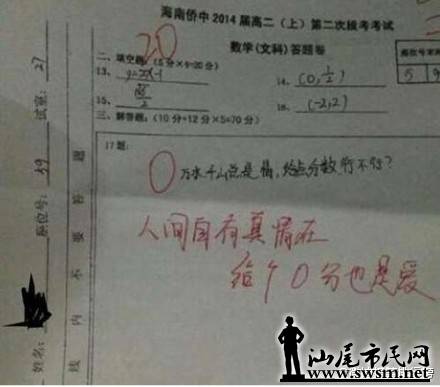 海南侨中2014届高二（上）第二次段考考试
数学(文科)答题卷
二、填空题（5分×4=20分）
20
13、y=2x-1
14、(0, 1/2)
15、
16、(-2,2)
三、解答题：(10分+12分×5=70分)
17题：
0 万水千山总是情，给点分数行不行？
人间自有真情在
给个0分也是爱
试室：27
座位号：39
姓名：
线 内 不 要 答 题
汕尾市民网
www.swsm.net